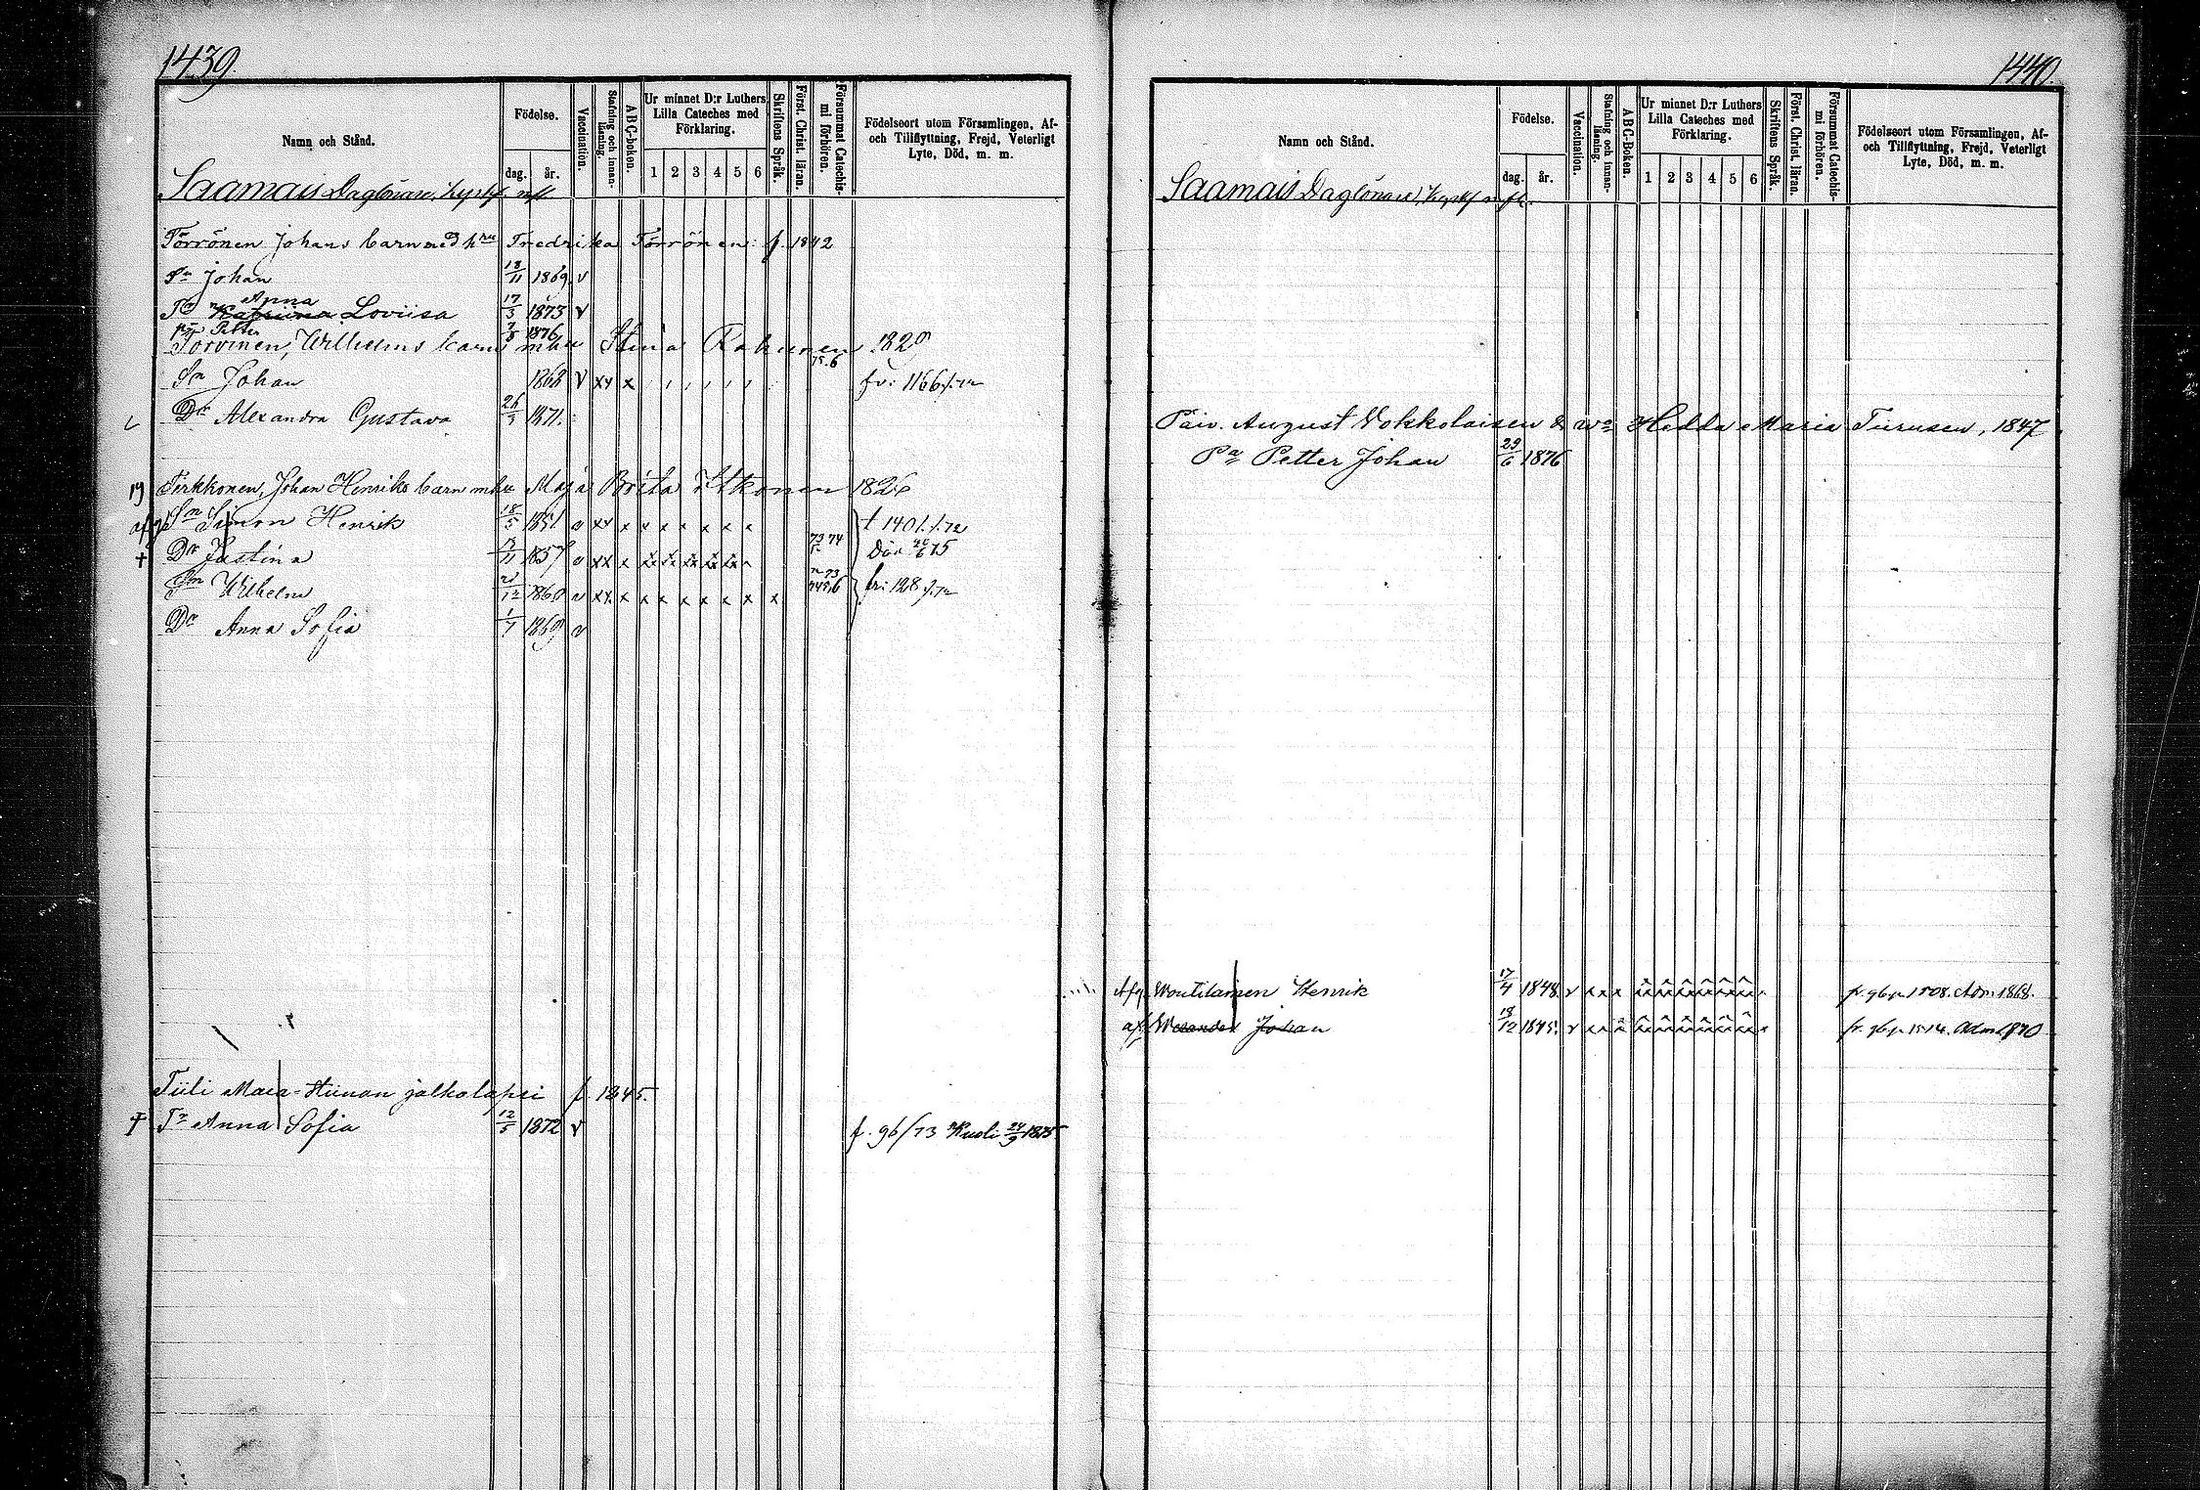 1439.
Namn och Stånd.
Födelse.
dag. år.
Vaccination.
Stafning och innan-läsning.
A B C-boken.
Ur minnet D:r Luthers
Lilla Cateches med
Förklaring.
1 2 3 4 5 6
Skriftens Språk.
Först. Christ. läran.
Försummat Catechis-mi förhören.
Födelseort utom Församlingen, Af-
och Tillflyttning, Frejd, Veterligt
Lyte, Död, m. m.
Saamais Daglönare,
Törrönen Johans barn med hru Fredrika Törrönen: f. 1842
Sn Johan 18/11 1869. v
Tr Katriina Anna Loviisa 17/3 1873 v
Petter 1876
Torvinen, Wilhelms barn mhu Stina Rahunen 1829
75.6
Sn Johan 1868 v xx x fr: 1166
Dr Alexandra Gustava 1871.
Pirkkonen, Johan Henriks barn mhu Maja Brita Itkonen 1826
Sn Simon Henrik 18/5 1851. v xx x x x x x x x t 1401
† Dr Justina 1857 v xx x 73 74 Död 75
Sn Wilhelm 1860 v xx x x x x x x x x fr: 128
Dr Anna Sofia 1/7 1869 v
Tiili Maia-Stiinan jalkolapsi f. 1845.
† Tr Anna Sofia 12/5 1872 v f. 96/73 Kuoli 24/9 1875
1440.
Namn och Stånd.
Födelse.
dag. år.
Vaccination.
Stafning och innan-läsning.
A B C-Boken.
Ur minnet D:r Luthers
Lilla Cateches med
Förklaring.
1 2 3 4 5 6
Skriftens Språk.
Först. Christ. läran.
Försummat Catechis-mi förhören.
Födelseort utom Församlingen, Af-
och Tillflyttning, Frejd, Veterligt
Lyte, Död, m. m.
Saamais Daglönare,
Päiv. August Vokkolaisen & wo Hedda Maria Turusen, 1847
Pa Petter Johan 29/6 1876
Afg. Woutilainen Henrik 17/4 1848. v x x x fr. gb p. 1508. Adm. 1868.
Johan 18/12 1845. v x x x fr. gb p. 1514. Adm. 1870